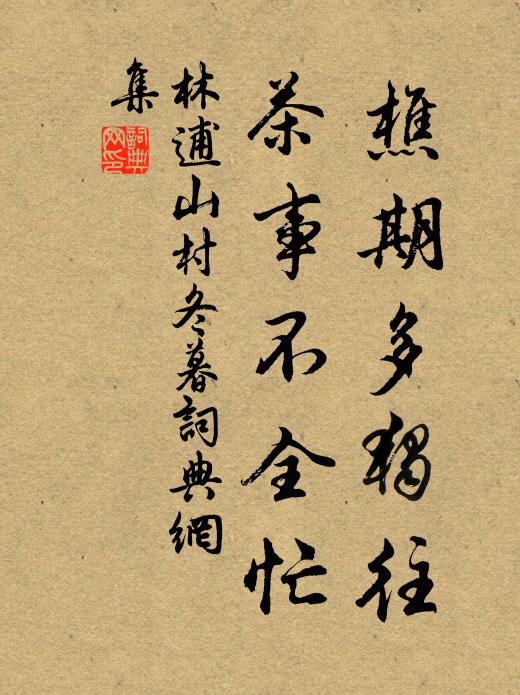 樵期多獨往
茶事不全忙
林逋山村冬暮詞典網
集
詞典網印